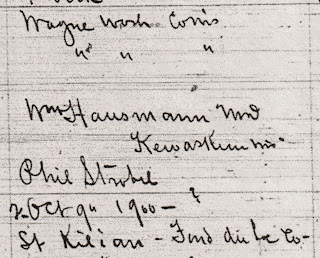 Wayne Wash Co Wis
" " "
Wm Hausmann Md
Kewaskum Wis
Phil Strobel
2. Oct 9" 1900 – ?
St Kilian – Fond du Lac Co –